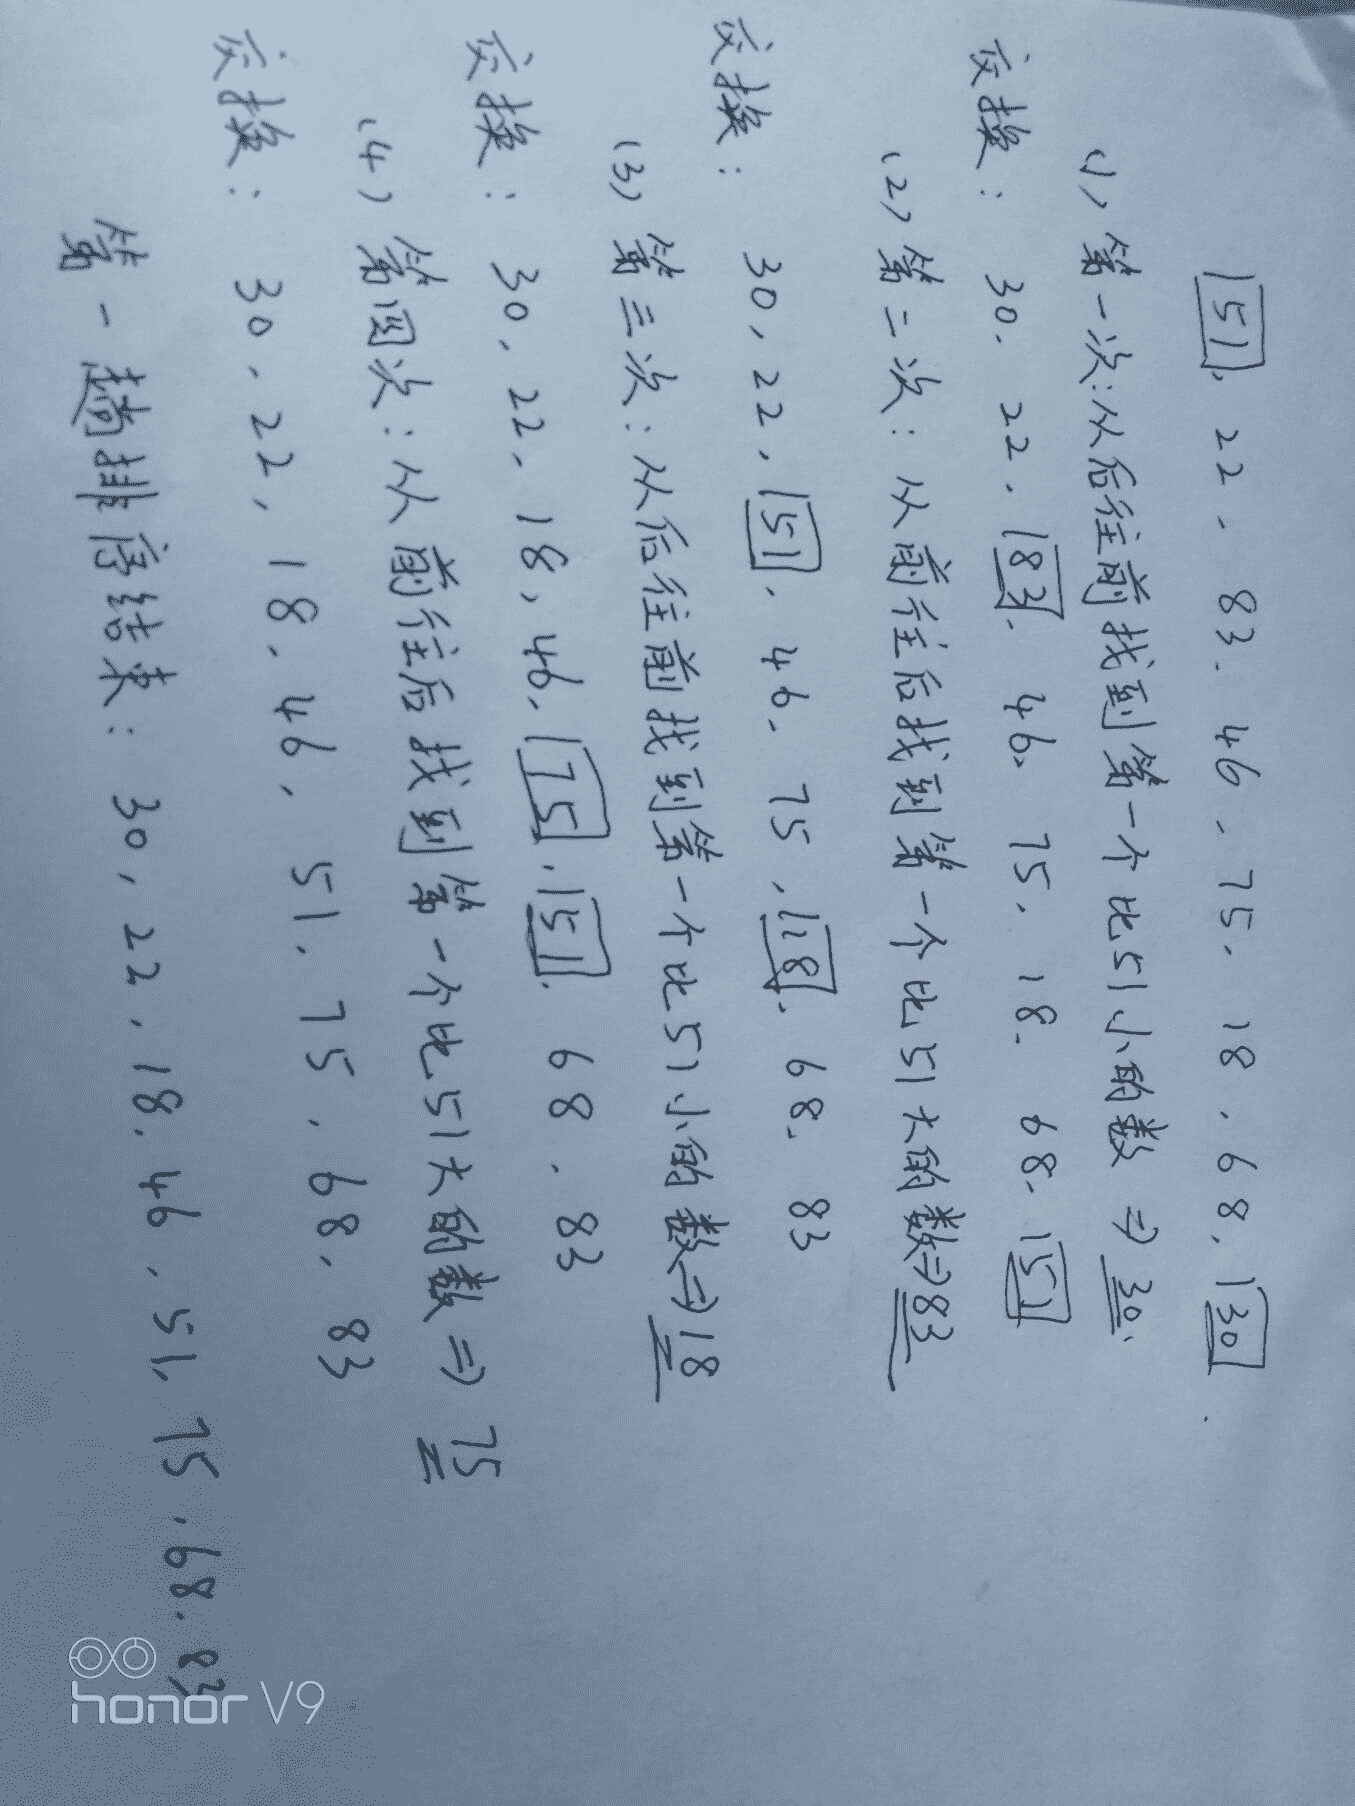 51, 22, 83, 46, 75, 18, 68, 30.
(1) 第一次:从后往前找到第一个比51小的数 ⇒ 30.
交换: 30, 22, 83, 46, 75, 18, 68, 51
(2) 第二次: 从前往后找到第一个比51大的数⇒83
交换: 30, 22, 51, 46, 75, 18, 68, 83
(3) 第三次: 从后往前找到第一个比51小的数⇒18
交换: 30, 22, 18, 46, 75, 51, 68, 83
(4) 第四次: 从前往后找到第一个比51大的数⇒ 75
交换: 30, 22, 18, 46, 51, 75, 68, 83
第一趟排序结束: 30, 22, 18, 46, 51, 75, 68, 83
honor V9